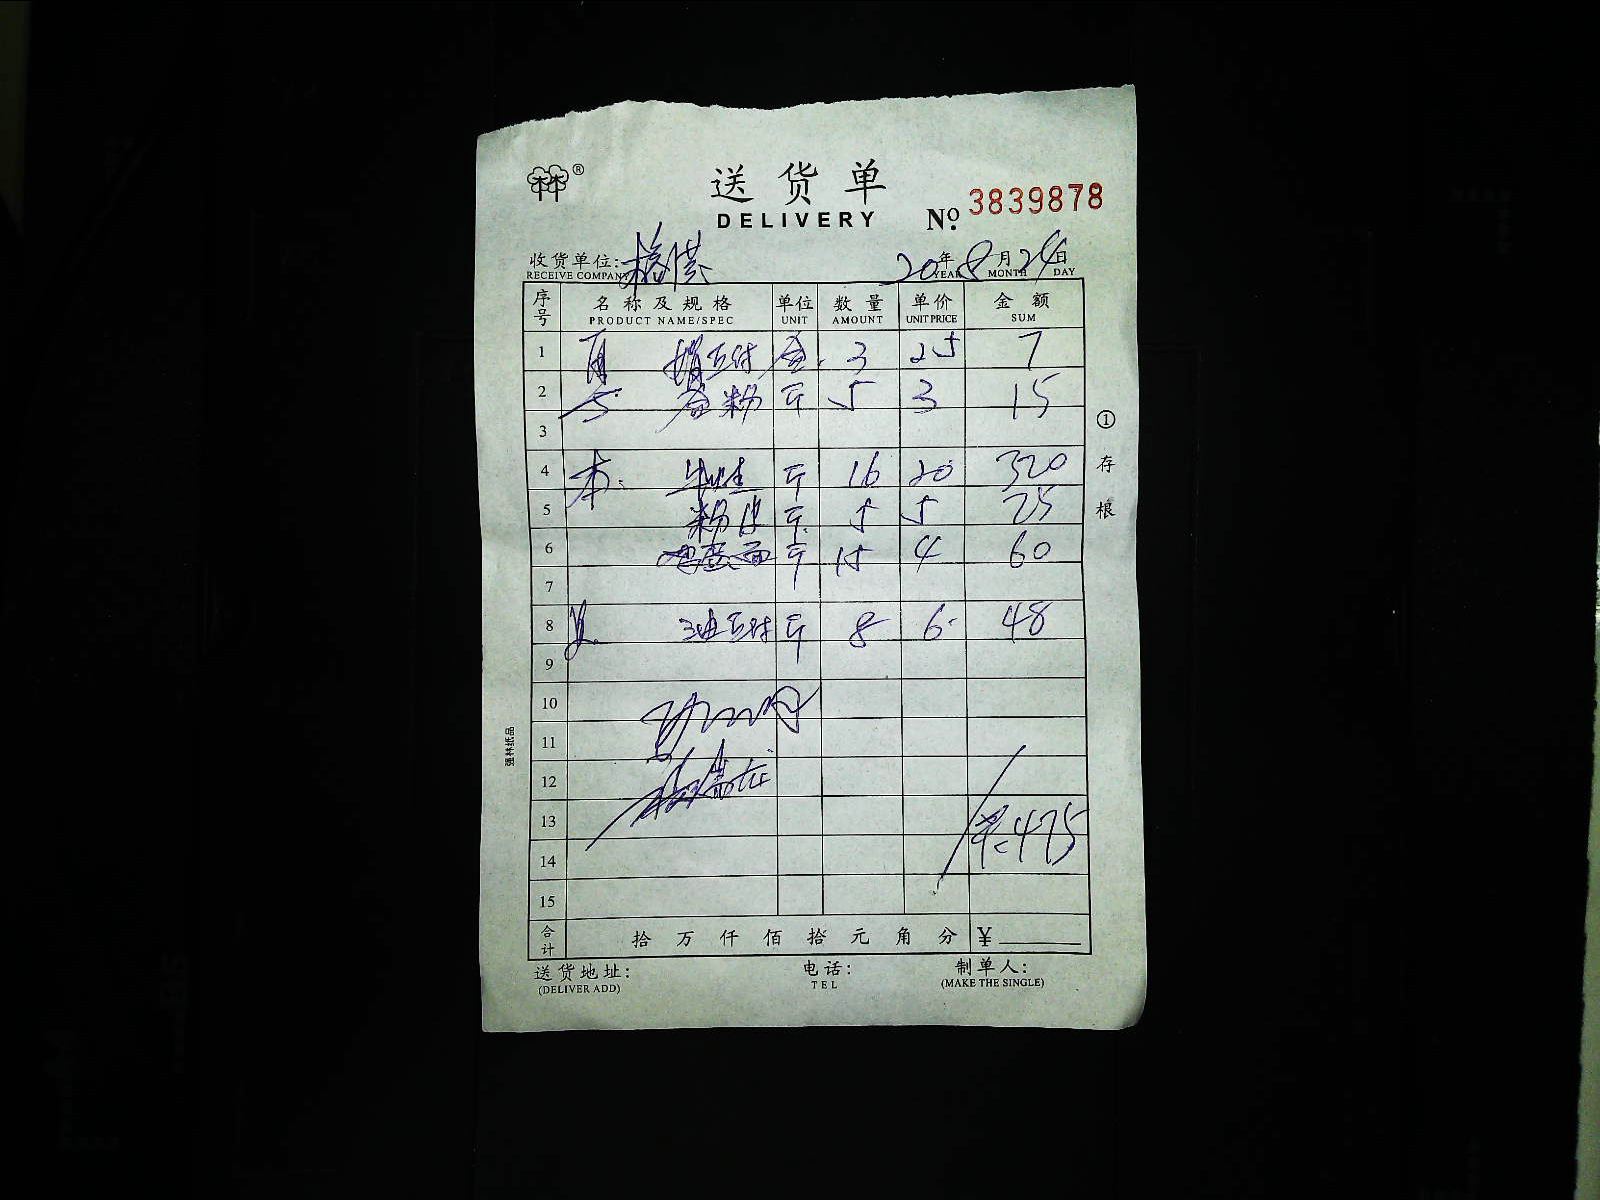 林®
送货单
DELIVERY
№ 3839878
收货单位:
RECEIVE COMPANY
20年8月24日
YEAR MONTH DAY
序号 名称及规格 单位 数量 单价 金额
PRODUCT NAME/SPEC UNIT AMOUNT UNIT PRICE SUM
1 盒 3 25 7
2 粉 斤 5 3 15
3
4 斤 16 20 320
5 粉皮 斤 5 5 25
6 斤 15 4 60
7
8 油豆 斤 8 6 48
9
10
11
12
13 475
14
15
合计 拾 万 仟 佰 拾 元 角 分 ¥
送货地址: 电话: 制单人:
(DELIVER ADD) TEL (MAKE THE SINGLE)
①存根
强林纸品